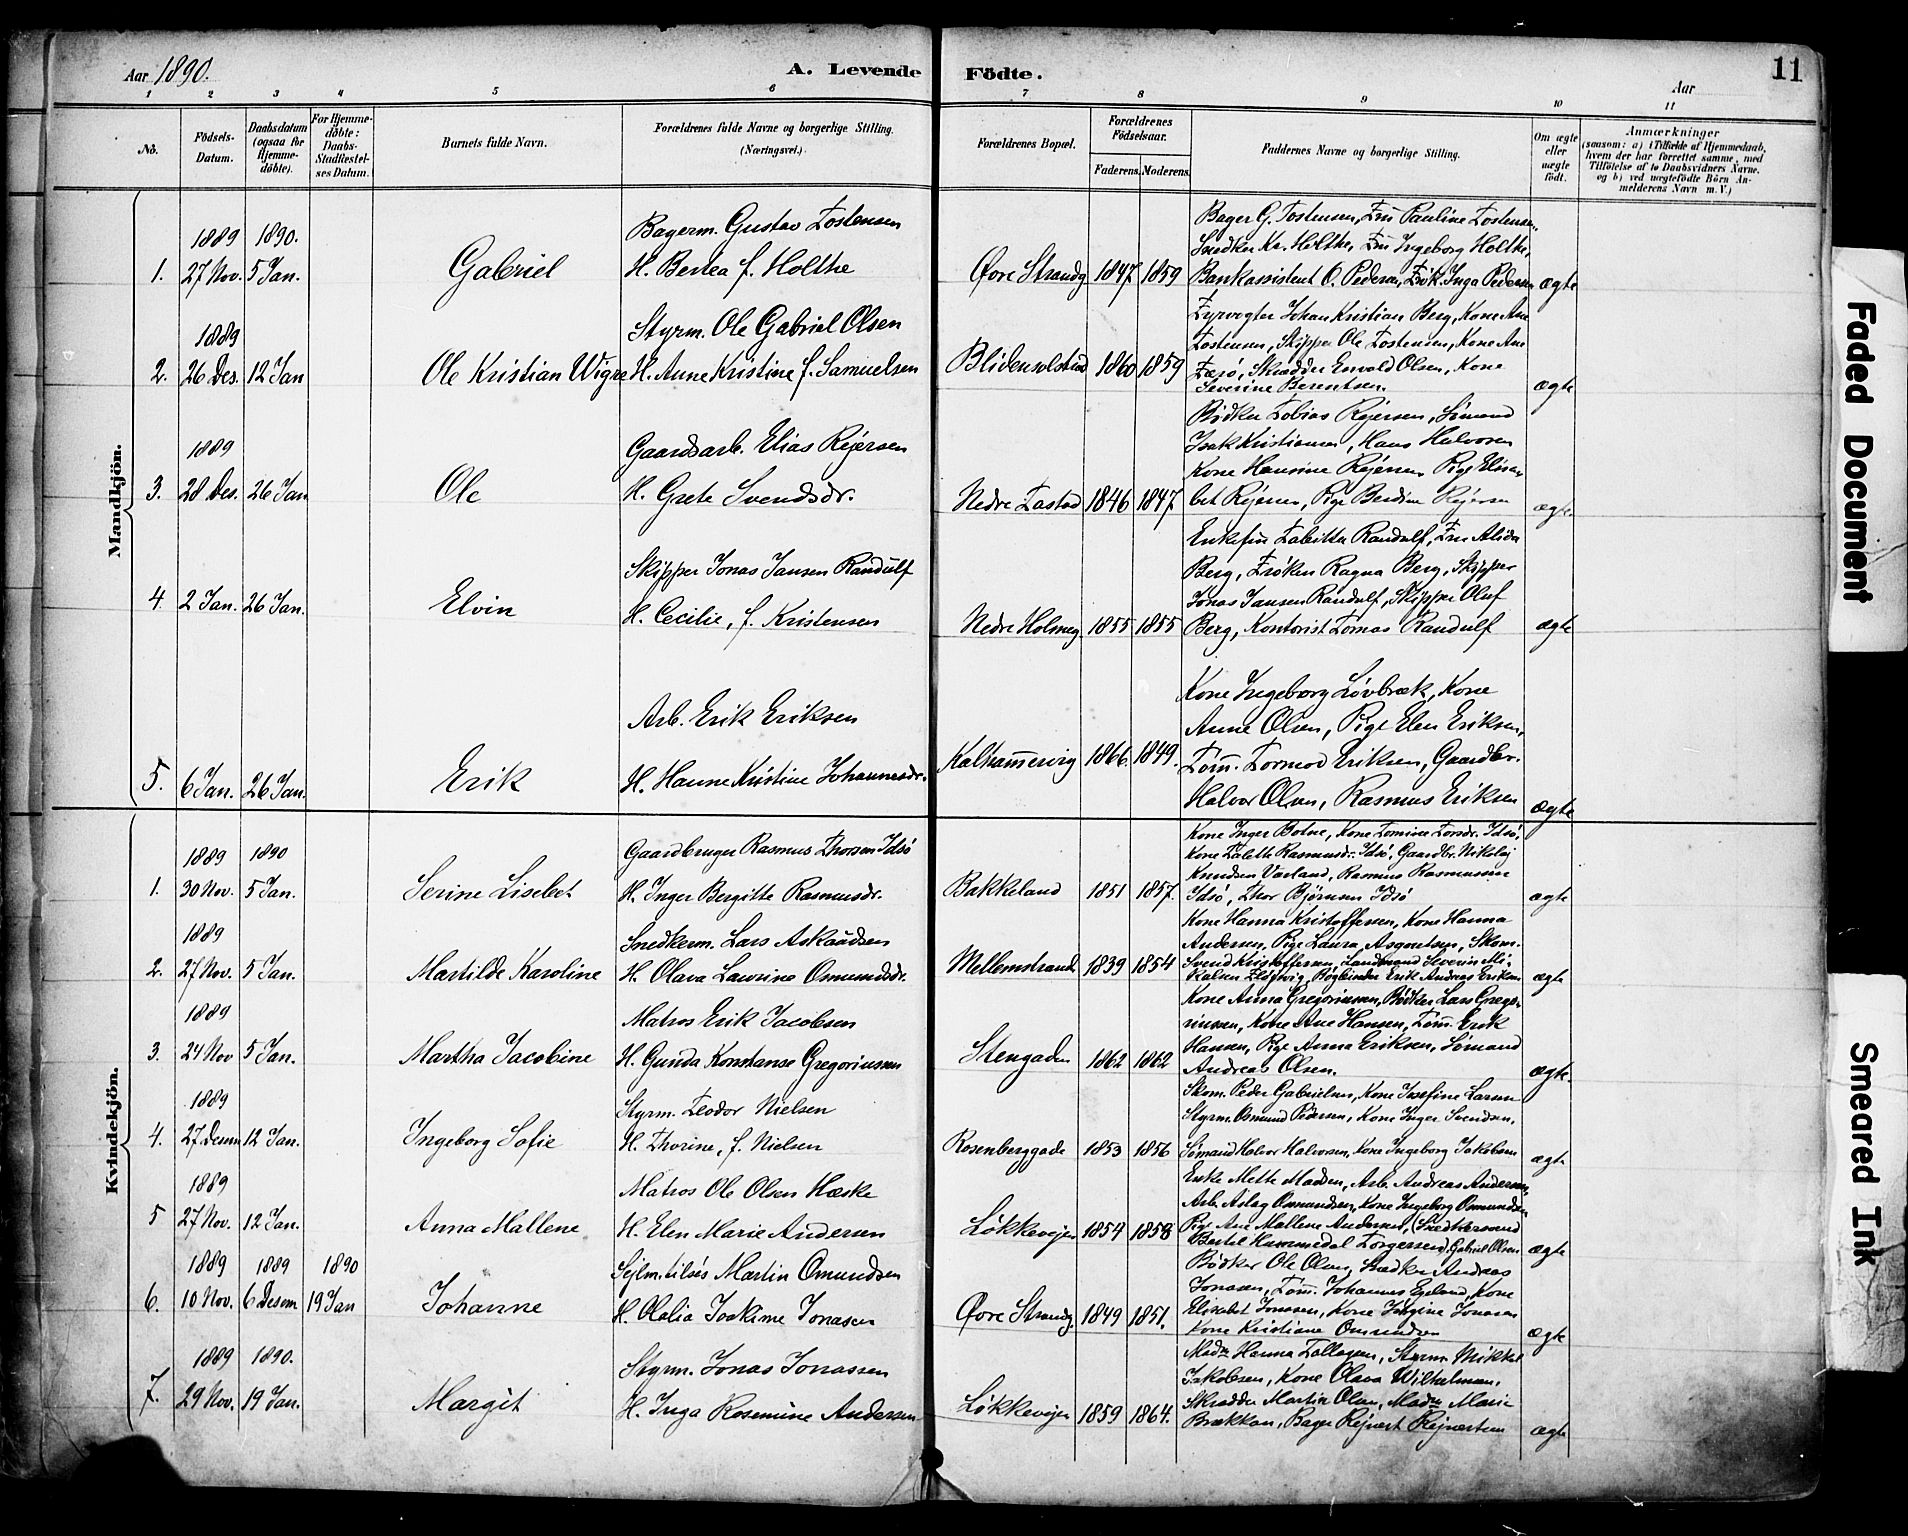 Aar 1890.
A. Levende Födte.
Aar
11
1 2 3 4 5 6 7 8 9 10 11
No.
Födsels-Datum.
Daabsdatum (ogsaa for Hjemme-döbte).
For Hjemme-döbte: Daabs-Stadfæstel-ses Datum.
Barnets fulde Navn.
Forældrenes fulde Navne og borgerlige Stilling. (Næringsvei.)
Forældrenes Bopæl.
Forældrenes Födselsaar.
Faderens. Moderens.
Faddernes Navne og borgerlige Stilling.
Om ægte eller uægte födt.
Anmærkninger
(saasom: a) i Tilfælde af Hjemmedaab,
hvem der har forrettet samme, med
Tilföielse af to Daabsvidners Navne.
og b) ved uægtefödte Börn An-
melderens Navn m. V.)
Mandkjön.
1889 1890.
1. 27 Nov. 5 Jan. Gabriel
Bagerm. Gustav Tostensen
H. Bertea f. Holthe
Øvre Strandg 1847 1859
Bager G. Tostensen, Fru Pauline Tostensen,
Snedker Kr. Holthe, Fru Ingeborg Holthe,
Bankassistent O. Pedersen, Frök. Inga Pedersen
ægte
1889
2. 26 Des. 12 Jan Ole Kristian Wigre
Styrm. Ole Gabriel Olsen
H. Anne Kristine f. Samuelsen
Blidensolstad 1860 1859
Fyrvogter Johan Kristian Berg, Kone Ane
Tostensen, Skipper Ole Tostensen, Kone Ane
Skrædder Envald Olsen, Kone
Severine Berentsen.
ægte
1889
3. 28 Des. 26 Jan Ole
Gaardsarb. Elias Rejersen
H. Grete Svendsdr.
Nedre Tastad 1846 1847
Bödker Tobias Rejersen, Sömand
Isak Kristiansen, Hans Halvorsen
Kone Hansine Rejersen Pige Elisa-
bet Rejersen, Pige Berdine Rejersen
ægte.
4. 2 Jan. 26 Jan. Elvin
Skipper Jonas Jansen Randulf
H. Cecilie, f. Kristensen
Nedre Holmeg. 1855 1855
Enkefru Tabitha Randulf, Fru Alida
Berg, Fröken Ragna Berg, Skipper
Jonas Jansen Randulf, Skipper Oluf
Berg, Kontorist Tomas Randulf
ægte
5. 6 Jan. 26 Jan. Erik
Arb. Erik Eriksen
H. Hanne Kristine Johannesdr.
Kalhammervig 1866. 1849.
Kone Ingeborg Lövbræk, Kone
Anne Olsen, Pige Elen Eriksen,
Töm. Tormod Eriksen, Gaardbr.
Halvor Olsen, Rasmus Eriksen
ægte
Kvindekjön.
1889 1890
1. 30 Nov. 5 Jan. Serine Lisebet
Gaardbruger Rasmus Thorsen Idsö
H. Inger Bergitte Rasmusdr.
Bakkeland 1851 1857.
Kone Inger Botne, Kone Tomine Torsdr. Idsö,
Kone Talette Rasmusdr. Idsö, Gaardbr. Nikolaj
Knudsen Varland, Rasmus Rasmussen
Idsö, Thor Björnsen Idsö
ægte
1889
2. 27 Nov. 5 Jan. Martilde Karoline
Snedkerm. Lars Askaudsen
H. Olava Lawrine Omundsdr.
Mellemstrand 1839 1854
Kone Hanna Kristoffersen, Kone Hanna
Andersen, Pige Laura Asgautsen, Skom.
Svend Kristoffersen, Landmand Severin Mi-
kalsen, Bogbinder Erik Andreas Eriksen
ægte
1889
3. 24 Nov 5 Jan. Martha Jacobine
Matros Erik Jacobsen
H. Gunda Konstanse Gregoriussen
Stengaden 1862 1862
Kone Anna Gregoriussen, Bödker Lars Grego-
riussen, Kone Ane Hansen, Töm. Erik
Hansen, Pige Anna Eriksen, Sömand
Andreas Olsen.
ægte.
1889
4. 27 Desem 12 Jan. Ingeborg Sofie
Styrm. Teodor Nielsen
H. Thorine, f. Nielsen
Rosenberggade 1853 1856
Skom. Peder Gabrielsen, Kone Josefine Larsen
Styrm. Osmund Pedersen, Kone Inger Svendsen,
Sömand Halvor Halvorsen, Kone Ingeborg Jakobsen
ægte
1889
5 27 Nov. 12 Jan. Anna Mallene
Matros Ole Olsen Hæske
H. Elen Marie Andersen
Løkkevejen 1854 1858
Enke Mette Madsen, Arb. Andreas Andersen,
Arb. Aslag Osmundsen, Kone Ingeborg Osmundsen
Pige Ane Mallene Andersen, Snedkersvend
Bertel Hammedal Torgersen, Gabriel Olsen
ægte
1889 1889 1890
6. 10 Nov. 6 Desem 19 Jan Johanne
Sejlm. Martin Omundsen
H. Olalia Joakime Jonasen
Øvre Strandg. 1849 1851.
Bödker Ole Olsen, Snedker Andreas
Jonasen, Töm. Johannes Egeland, Kone
Elisabet Jonasen, Kone Jörgine Jonasen
Kone Kristiane Omundsen
ægte
1889 1890.
7. 29 Nov. 19 Jan. Margit
Styrm. Jonas Jonassen
H. Inga Rosemine Andersen
Løkkevejen 1859 1864.
Madm Hanna Tollagsen, Styrm. Mikkel
Jakobsen, Kone Olava Wilhelmsen,
Skrædder Martin Olsen, Madm Marie
Brækkan, Bager Rejnert Rejnertsen
ægte
Faded Document
Smeared Ink